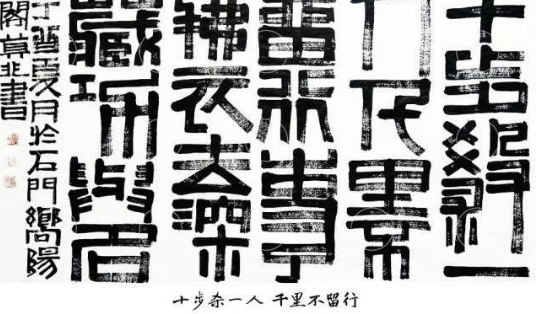 十步殺一
人千里不
留行事了
拂衣去深
藏功與名
丁酉夏月於石門嚮陽
閣 非書
十步杀一人 千里不留行